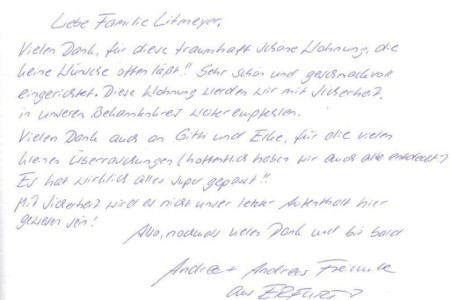 Liebe Familie Litmeyer,
Vielen Dank, für diese traumhaft schöne Wohnung, die
keine Wünsche offen läßt!! Sehr schön und geschmackvoll
eingerichtet. Diese Wohnung werden wir mit Sicherheit,
in unseren Bekanntenkreis weiterempfehlen.
Vielen Dank auch an Gitti und Eike, für die vielen
kleinen Überraschungen (hoffentlich haben wir auch alle entdeckt?
Es hat wirklich alles super gepasst!!
Mit Sicherheit wird es nicht unser letzter Aufenthalt hier
gewesen sein!
Also, nochmals vielen Dank und bis bald
Andrea + Andreas
aus ERFURT